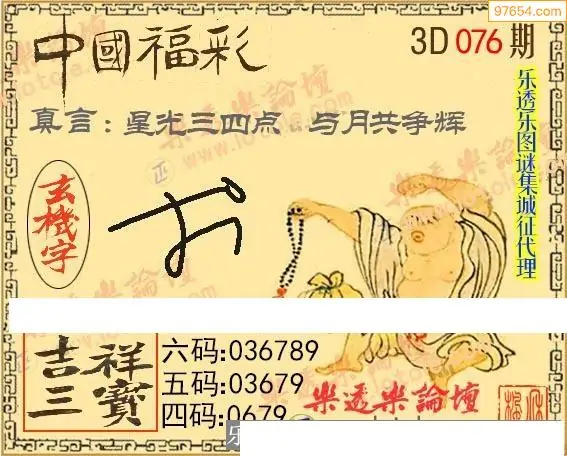 97654.com
中國福彩
3D 076 期
真言：星光三四点 与月共争辉
乐透乐图谜集城征代理
玄機字
吉祥三寶
六码:036789
五码:03679
四码:0679
樂透樂論壇